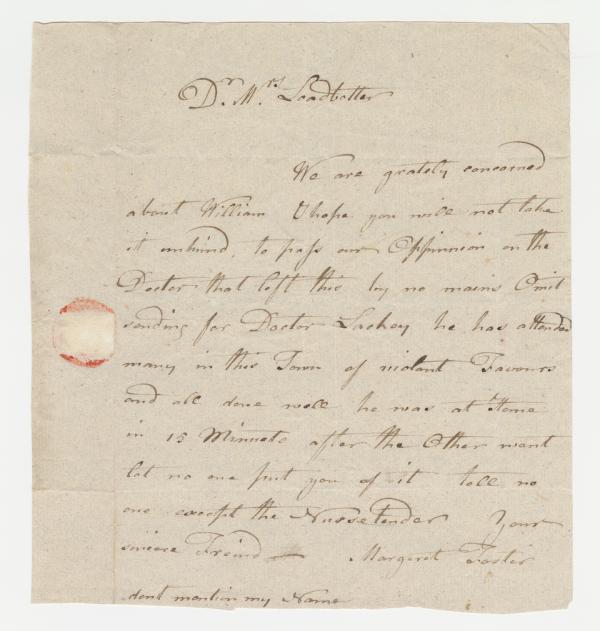 Dr. Mrs. Leadbetter
We are grately concerned
about William I hope you will not take
it unkind, to pass our Oppinnion on the
Doctor that left this by no mains Omit
sending for Doctor Lackey he has attended
many in this Town of violant Favours
and all done well he was at Home
in 15 Minuets after the Other want
let no one put you of it tell no
one except the Nursetender Your
sincere Freind — Margaret Foster
dont mention my Name